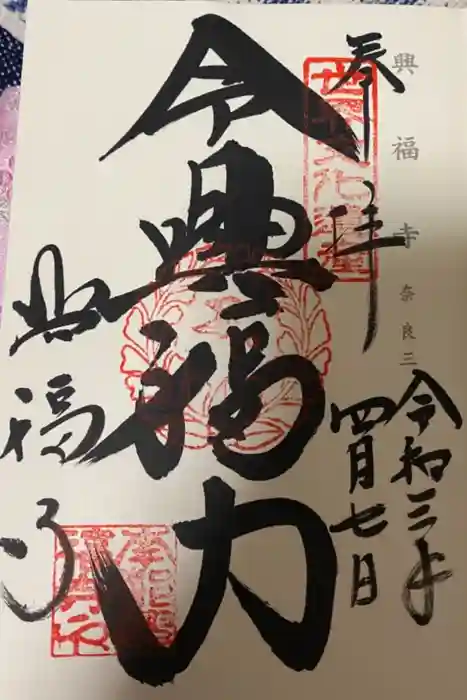 興福寺 奈良三
奉拝
令和三年
四月七日
令興福力
興福寺